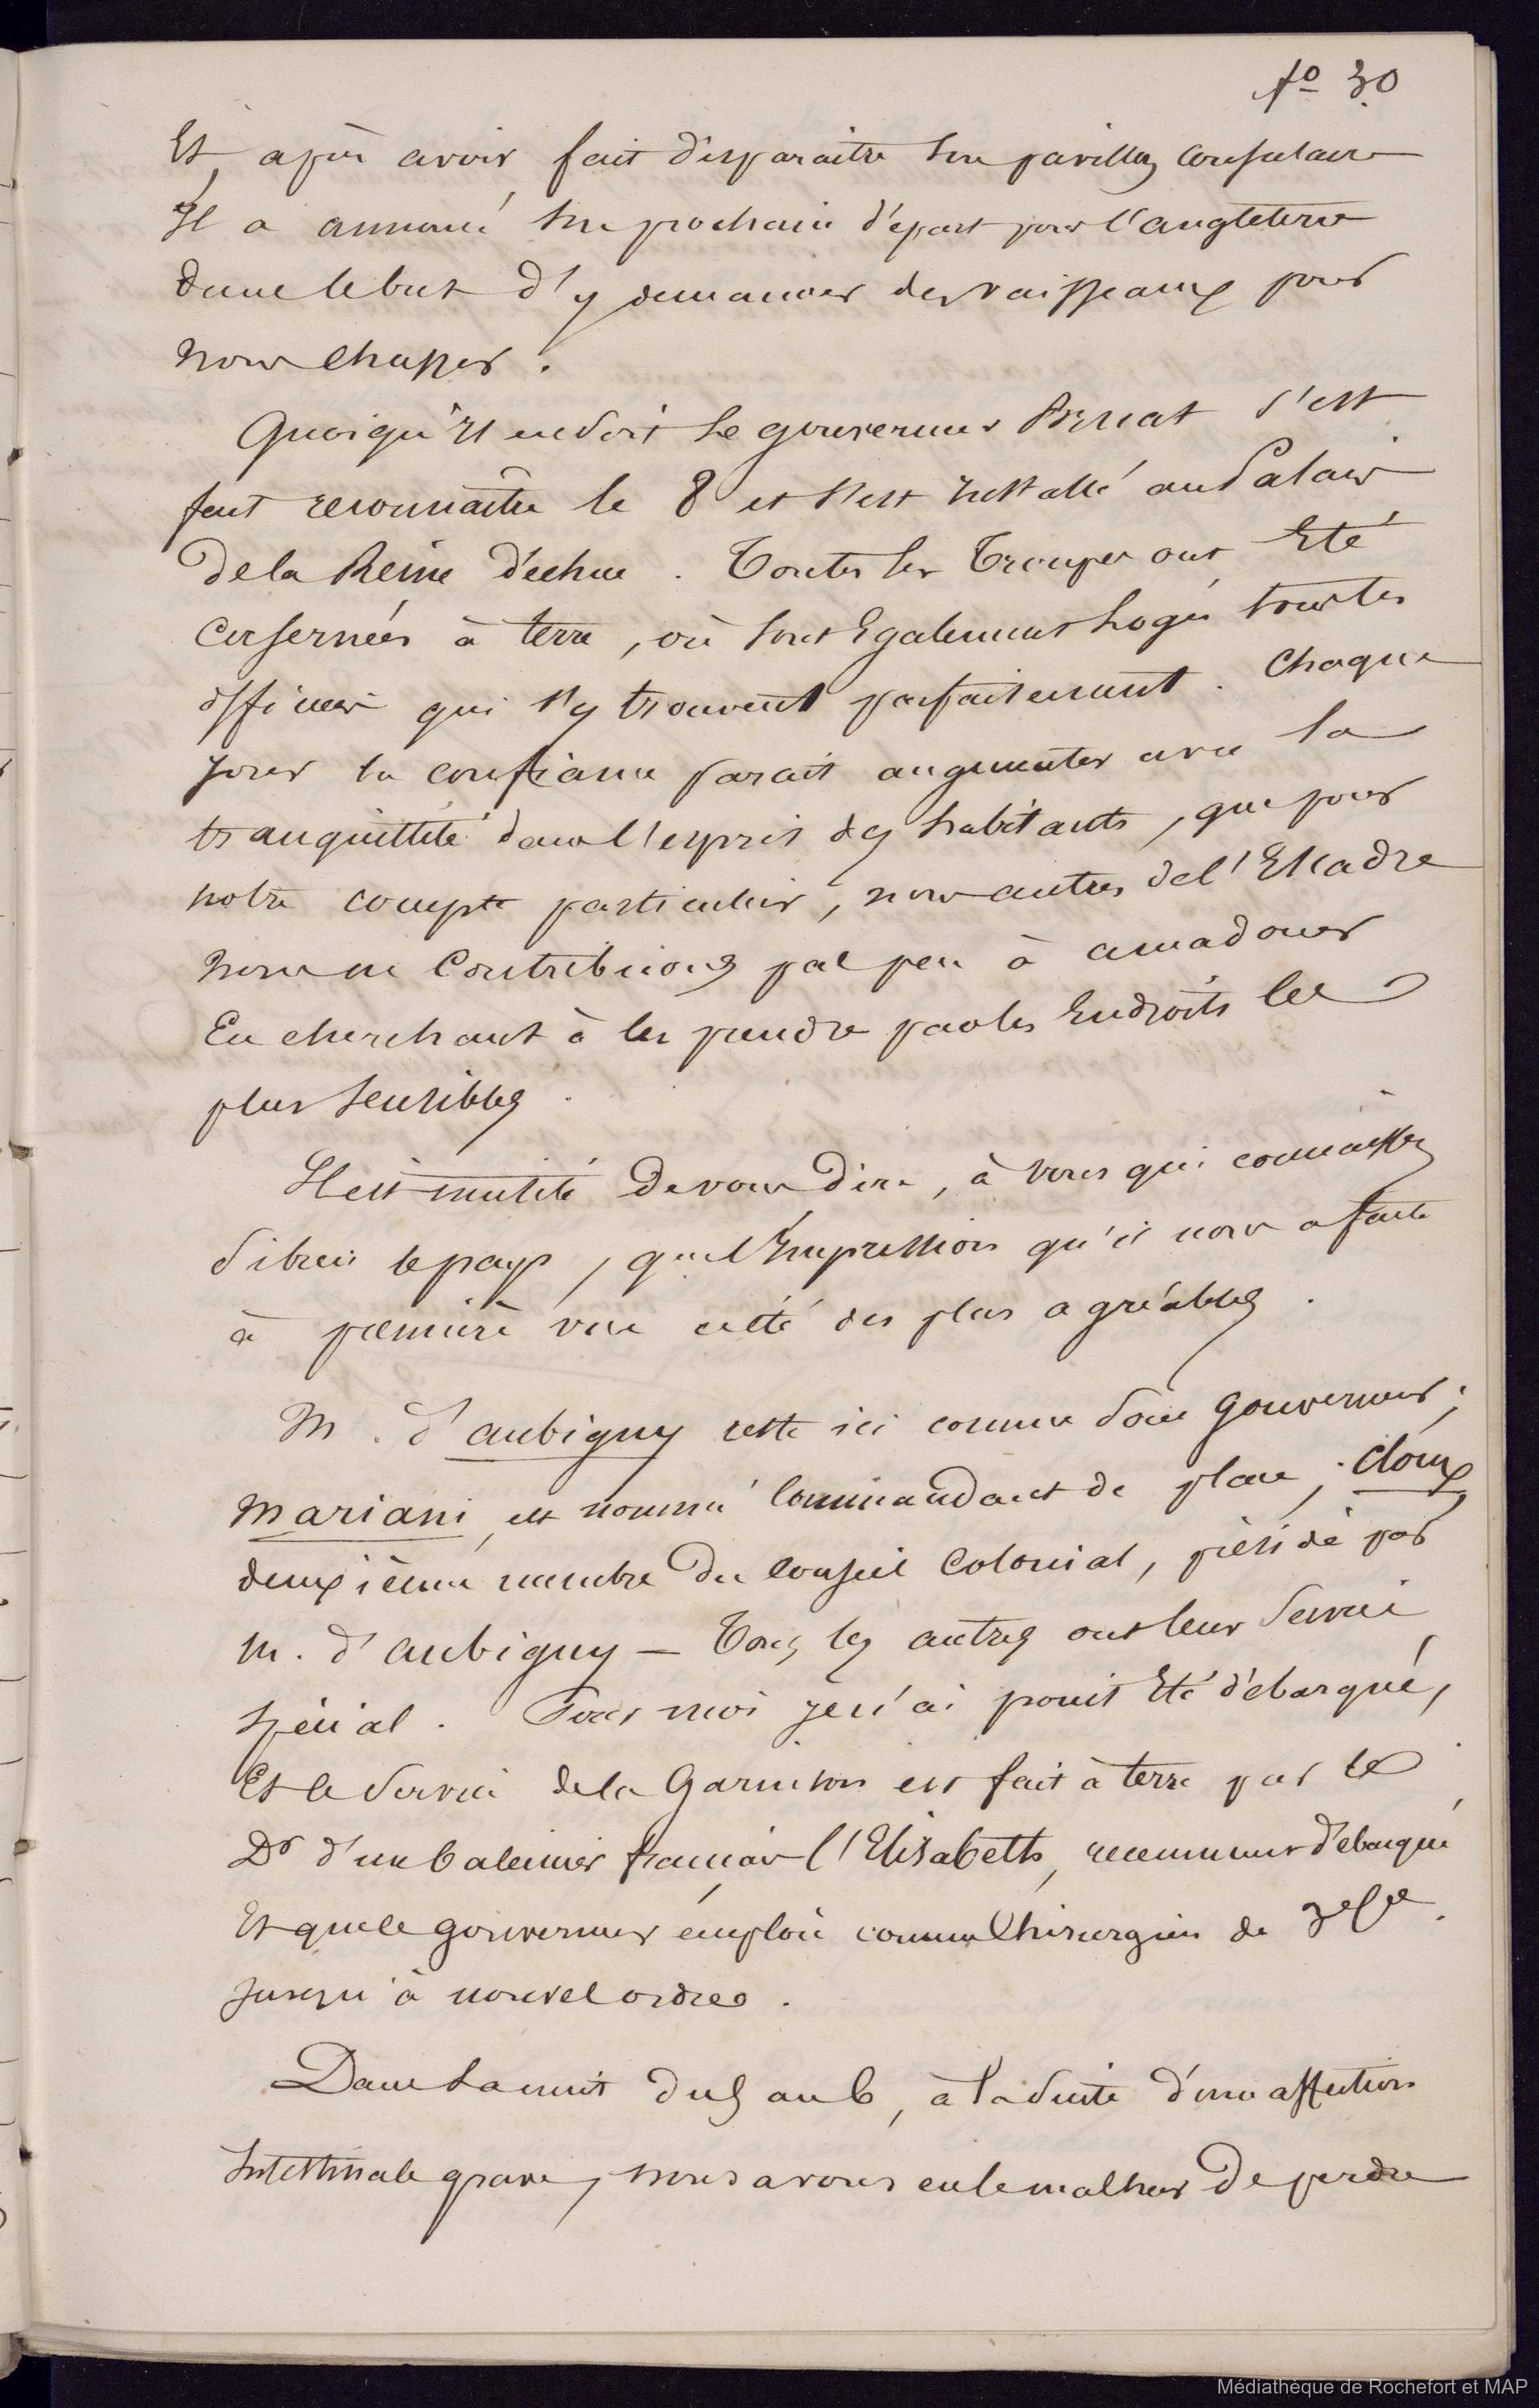 fo 30
Et, après avoir fait disparaitre son pavillon consulaire
Il a annoncé son prochain départ pour l'angleterre
dans le but d'y demander des vaisseaux pour
nous chasser.
Quoiqu'il en soit le gouverneur Bruat s'est
fait reconnaître le 8 et s'est installé au Palais
de la Reine déchue. Toutes les Troupes ont Eté
Casernées à terre, où sont Egalement logés tous les
officiers qui s'y trouvent parfaitement. Chaque
jour la confiance parait augmenter avec la
tranquillité dans l'esprit des habitants, que pour
notre compte particulier, nous autres de l'Escadre
nous ne Contribuons pas peu à amadouer
En cherchant à les prendre par les Endroits les
plus sensibles.
Il est inutile de vous dire, à vous qui connaissez
si bien le pays, que l'Impression qu'il nous a faite
à première vue a été des plus agréables.
M. d'aubigny reste ici comme sous Gouverneur;
Mariani, est nommé Commandant de place; Cloux
deuxième membre du Conseil Colonial, présidé par
M. d'aubigny — Tous les autres ont leur Service
spécial. Pour moi je n'ai point Eté débarqué,
Et le Service de la Garnison est fait à terre par le
Dr d'un baleinier français l'Elisabeth, récemment débarqué
Et que le gouverneur emploie comme Chirurgien de 3e Cl.
Jusqu'à nouvel ordres.
Dans la nuit du 5 au 6, à la suite d'une affection
Intestinale grave, nous avons eu le malheur de perdre
Médiathèque de Rochefort et MAP